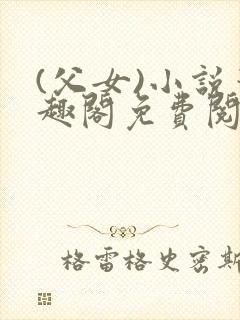 (父女)小説
趣閣免費閱
格雷格史密斯